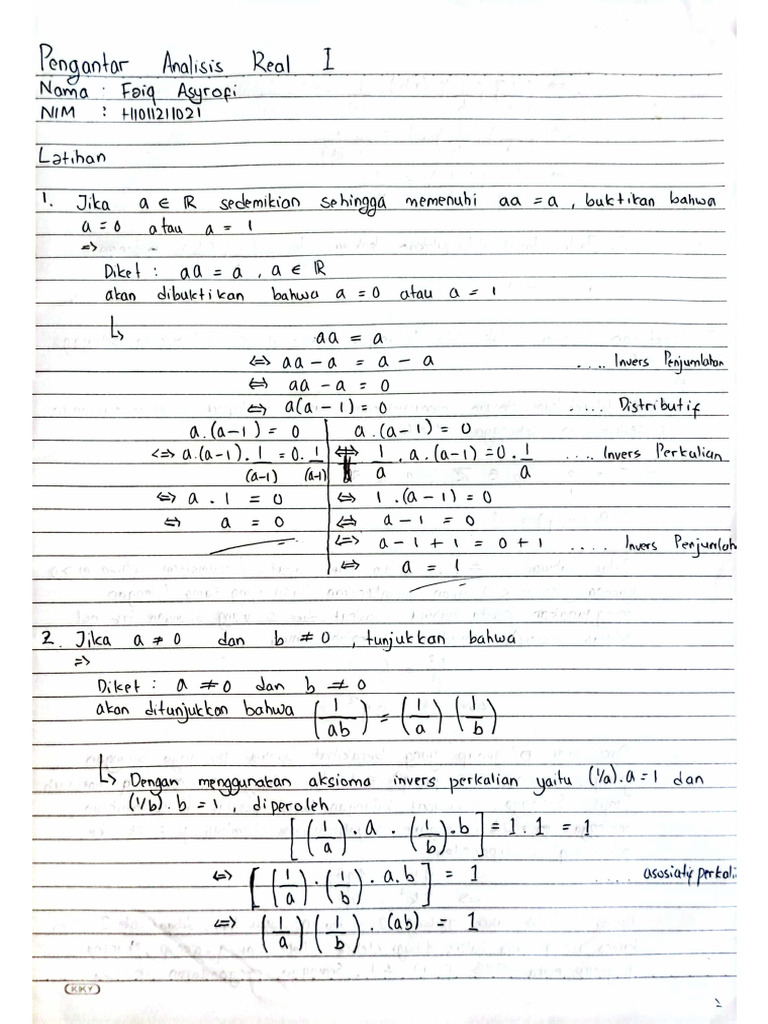 Pengantar Analisis Real I
Nama : Faiq Asyrofi
NIM : H1011211021
Latihan
1. Jika a ∈ ℝ sedemikian sehingga memenuhi aa = a, buktikan bahwa
a = 0 atau a = 1
=>
Diket : aa = a, a ∈ ℝ
akan dibuktikan bahwa a = 0 atau a = 1
↳
aa = a
<=> aa - a = a - a .... Invers Penjumlahan
<=> aa - a = 0
<=> a(a - 1) = 0 .... Distributif
a.(a-1) = 0 | a.(a-1) = 0
<=> a.(a-1). 1/(a-1) = 0. 1/(a-1) | <=> 1/a . a.(a-1) = 0. 1/a .... Invers Perkalian
<=> a . 1 = 0 | <=> 1.(a-1) = 0
<=> a = 0 | <=> a - 1 = 0
<=> a - 1 + 1 = 0 + 1 .... Invers Penjumlah
<=> a = 1
2. Jika a ≠ 0 dan b ≠ 0, tunjukkan bahwa
=>
Diket : a ≠ 0 dan b ≠ 0
akan ditunjukkan bahwa (1/ab) = (1/a) (1/b)
↳ Dengan menggunakan aksioma invers perkalian yaitu (1/a).a = 1 dan
(1/b).b = 1, diperoleh
[(1/a) . a . (1/b) . b] = 1 . 1 = 1
<=> [(1/a) . (1/b) . a.b] = 1 .... asosiatif perkali
<=> (1/a) (1/b) . (ab) = 1
KKY